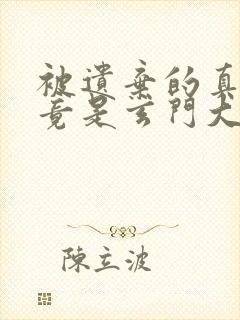 被遺棄的真
竟是玄門大
陳立波